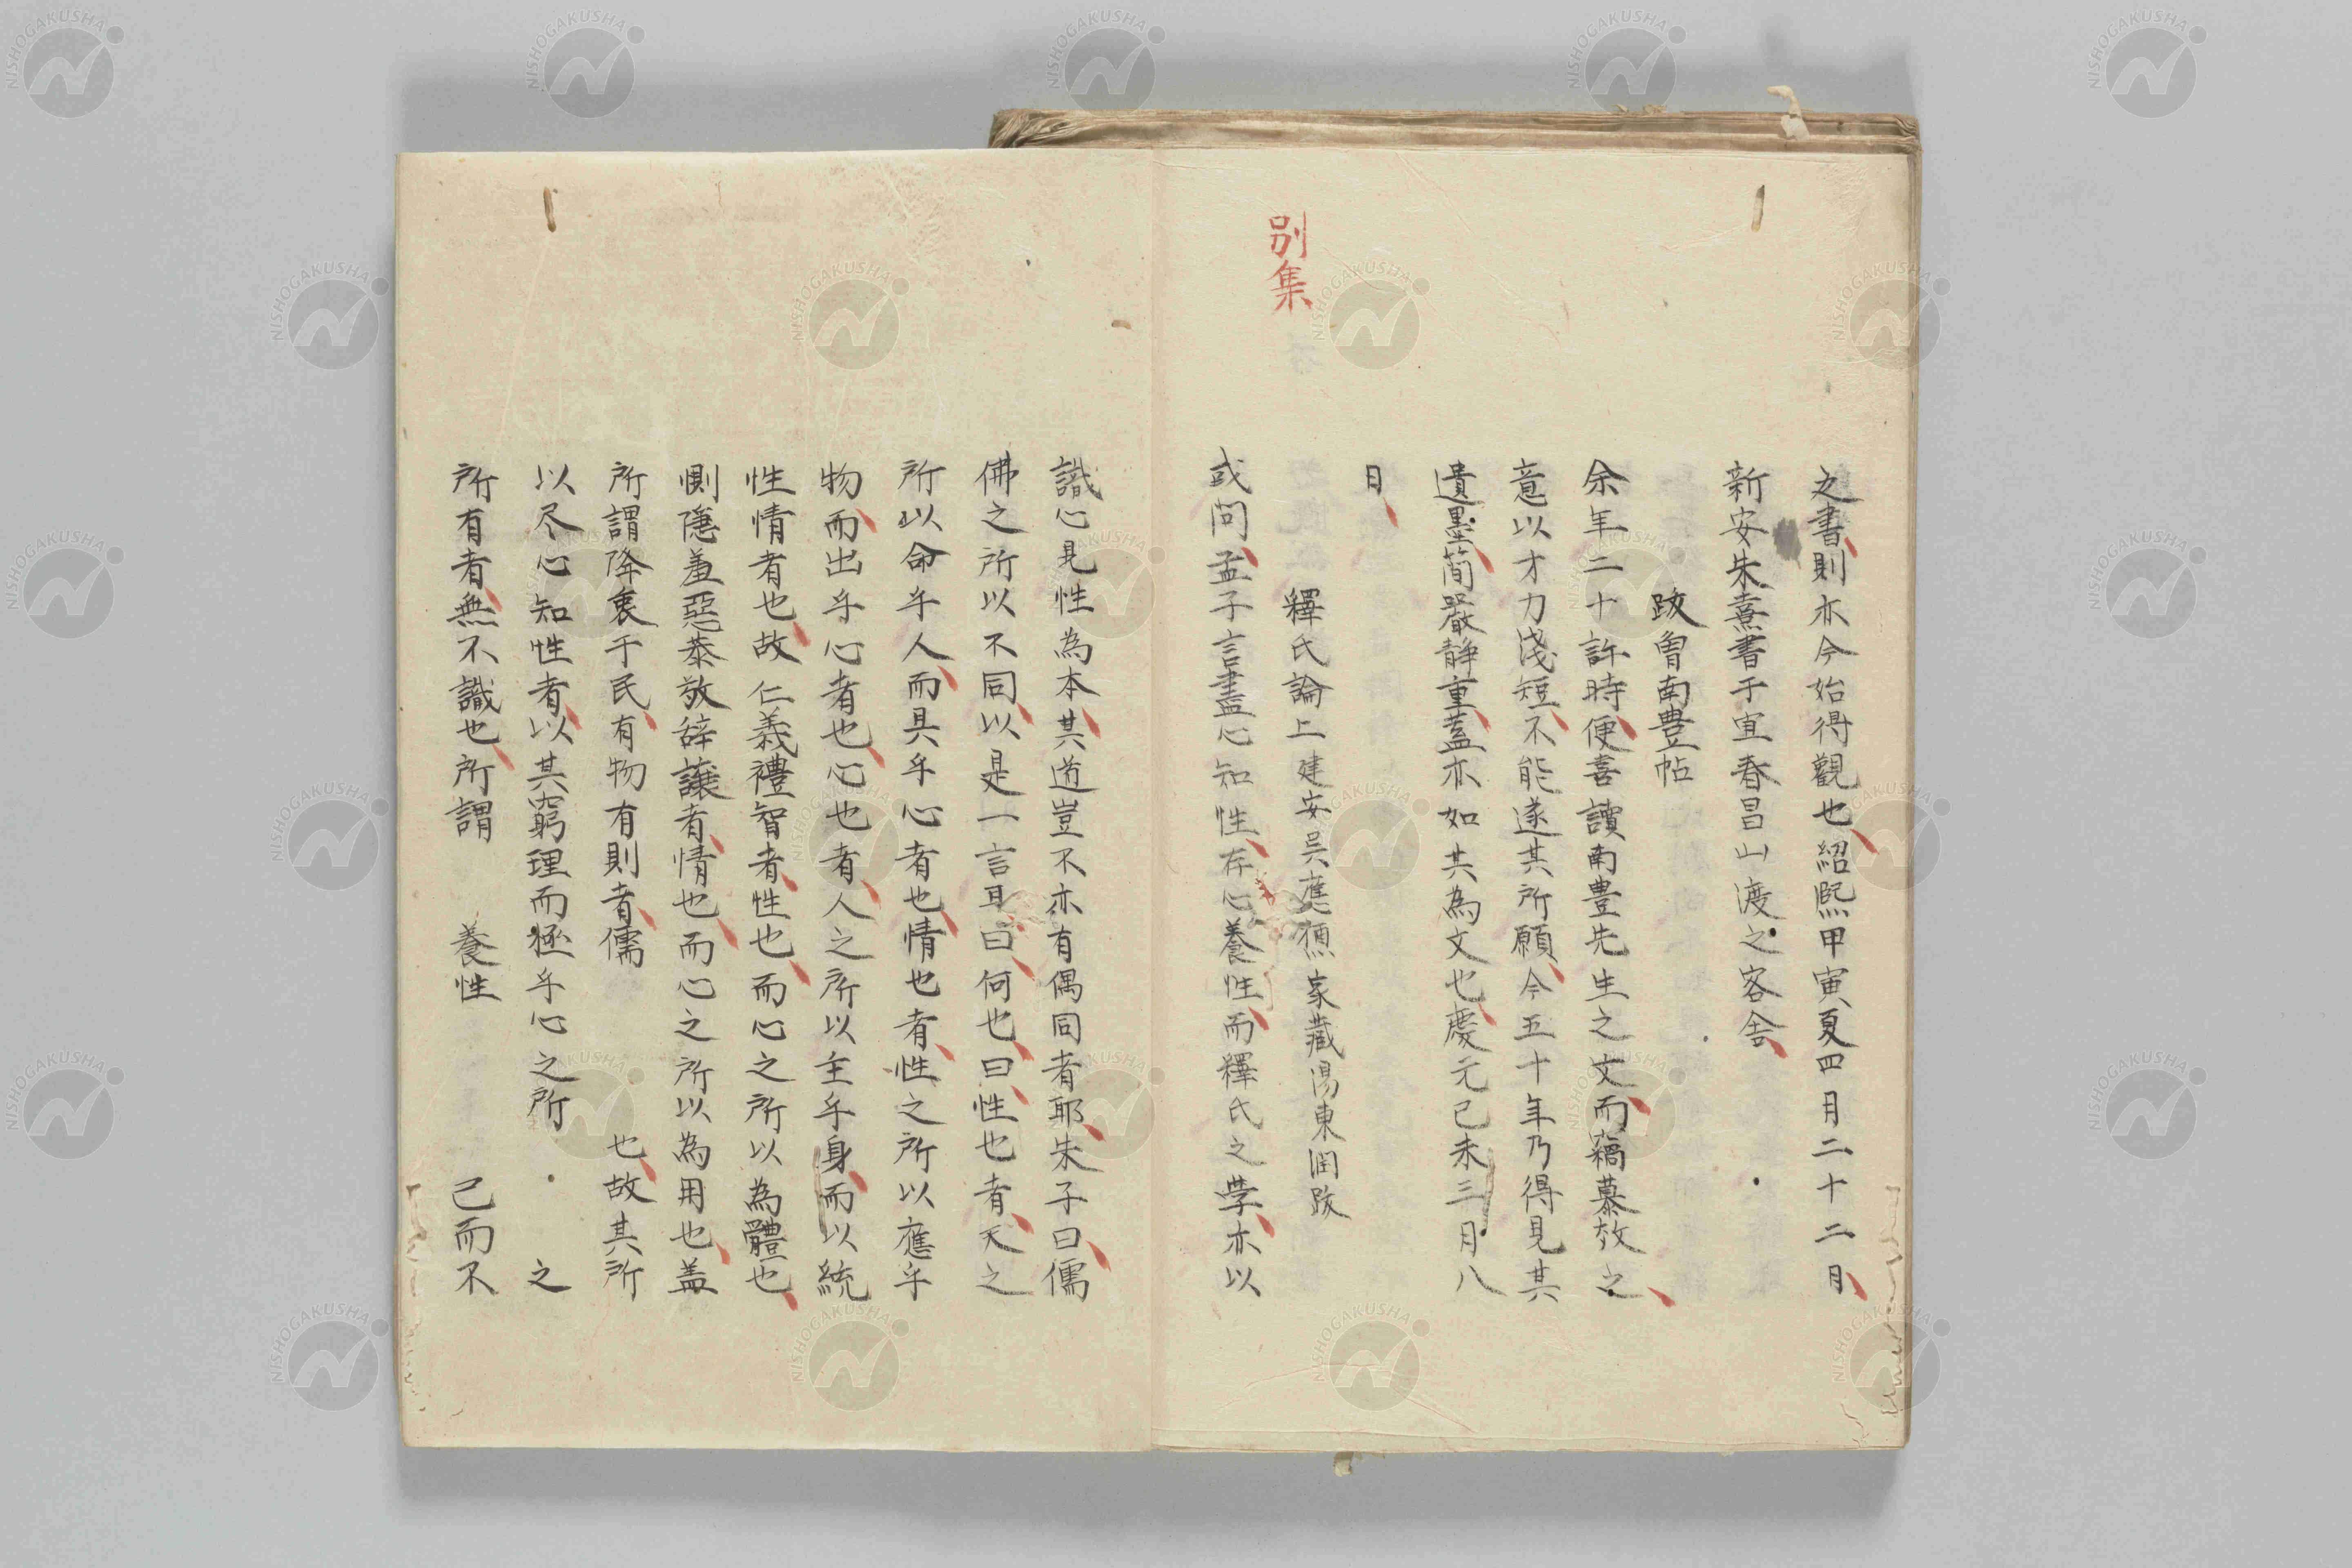 之書則亦今始得觀也紹熙甲寅夏四月二十二月
新安朱熹書于宜春昌山渡之客舍
跋曾南豊帖
余年二十許時便喜讀南豊先生之文而竊慕效之
意以才力淺短不能遂其所願今五十年乃得見其
遺墨簡嚴静重蓋亦如其為文也慶元己未三月八
日
別集
釋氏論上 建安吳應櫄家藏湯東澗跋
或問孟子言盡心知性存心養性而釋氏之學亦以
識心見性為本其道豈不亦有偶同者耶朱子曰儒
佛之所以不同以是一言耳曰何也曰性也者天之
所以命乎人而具乎心者也情也者性之所以應乎
物而出乎心者也心也者人之所以主乎身而以統
性情者也故仁義禮智者性也而心之所以為體也
惻隠羞惡恭敬辞譲者情也而心之所以為用也盖
所謂降衷于民有物有則者儒 也故其所
以尽心知性者以其窮理而極乎心之所 之
所有者無不識也所謂 養性 己而不
NISHOGAKUSHA